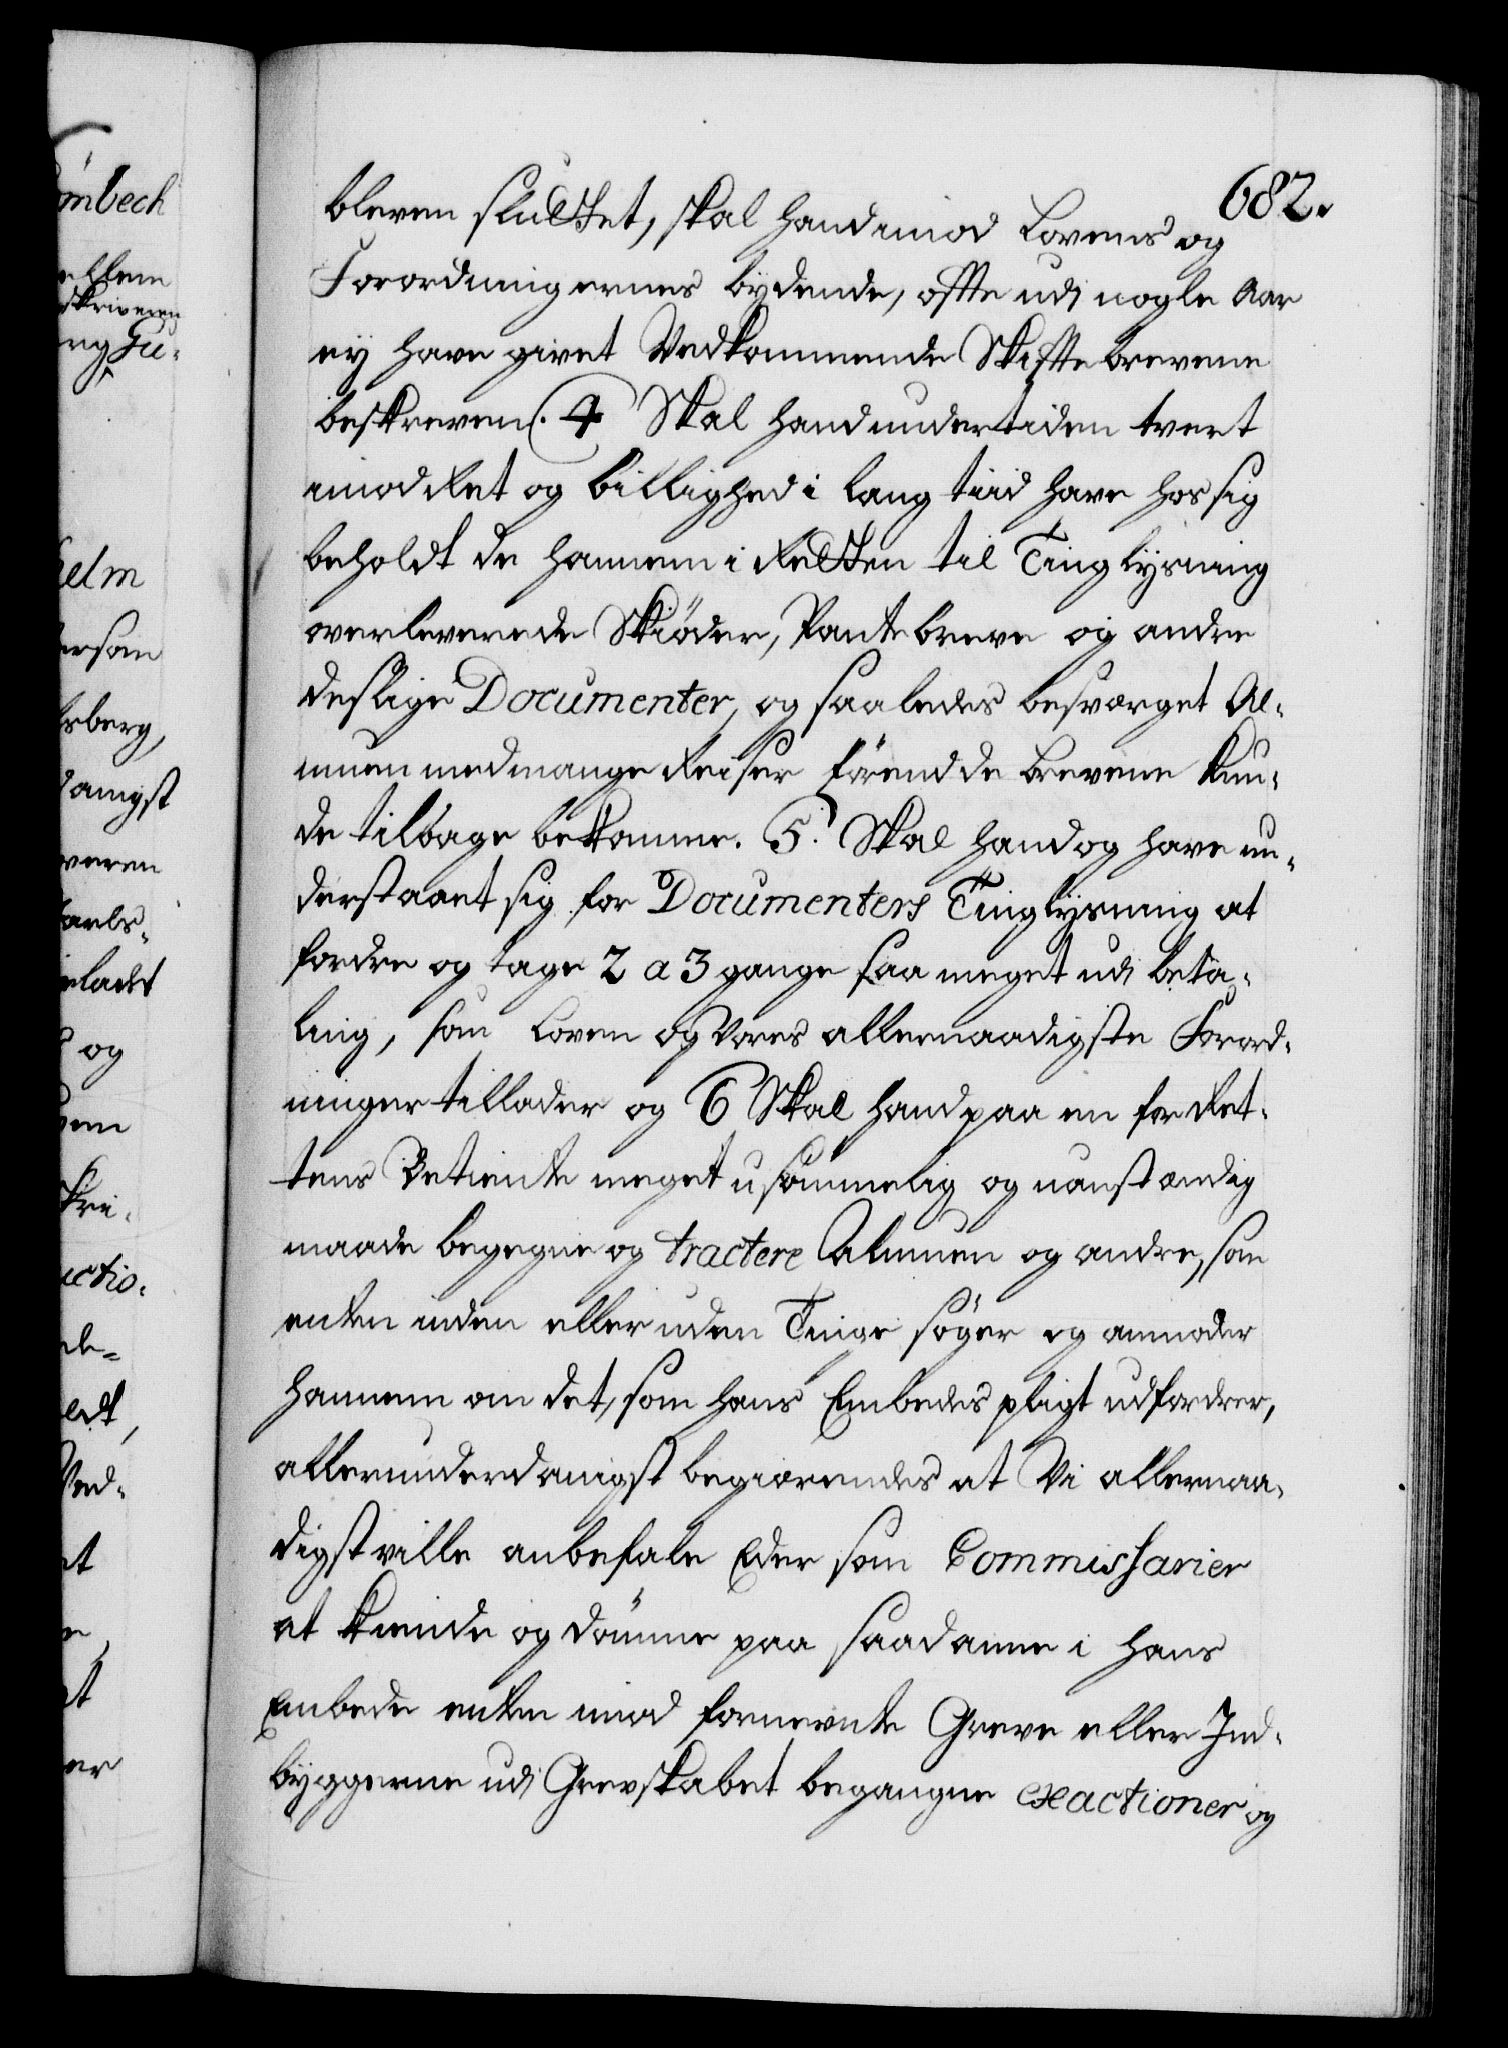 682.
bleven sluttet, skal hand imod Lovens og
Forordningernes bydende, offte udi nogle Aar
ey have givet Vedkommende Skiftebrevene
beskreven. 4 Skal hand undertiden tvert
imod Ret og billighed i lang tiid have hos sig
beholdt de hannem i Retten til Tinglysning
overleverede Skiöder, Pantebreve og andre
deslige Documenter, og saaledes besværget Al-
muen med mange Reiser förend de brevene kun-
de tilbage bekomme. 5. Skal hand og have un-
derstaaet sig for Documenters Tinglysning at
fordre og tage 2 a 3 gange saa meget udi beta-
ling, som Loven og Vores allernaadigste Forord-
ninger tillader og 6 Skal hand paa en for Ret-
tens Betiente meget usömmelig og uanstændig
maade begegne og tractere Almuen og andre, som
enten inden eller uden Tinge söger og anmoder
hannem om det, som hans Embedes pligt udfordrer,
allerunderdanigst begiærendes at Vi allernaa-
digst ville anbefale Eder som Commissarier
at kiende og dömme paa saadanne i hans
Embede enten imod fornevnte Greve eller Ind-
byggerne udi Grevskabet begangne exactioner og
mbech
ellem
dskriveren
ng Gu-
helm
ersom
rsberg,
danigst
veren
arls-
eladt
og
skri-
actio-
de-
eldt,
Ved-
et
e,
et
er